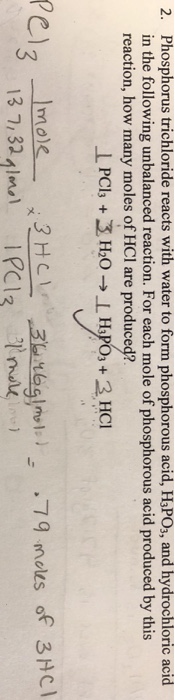 2. Phosphorus trichloride reacts with water to form phosphorous acid, H₃PO₃, and hydrochloric acid
in the following unbalanced reaction. For each mole of phosphorous acid produced by this
reaction, how many moles of HCl are produced?
1 PCl₃ + 3 H₂O → 1 H₃PO₃ + 3 HCl
PCl₃ 1mole × 3 HCl 36.46g/mol = .79 moles of 3HCl
137.32g/mol 1PCl₃ mole